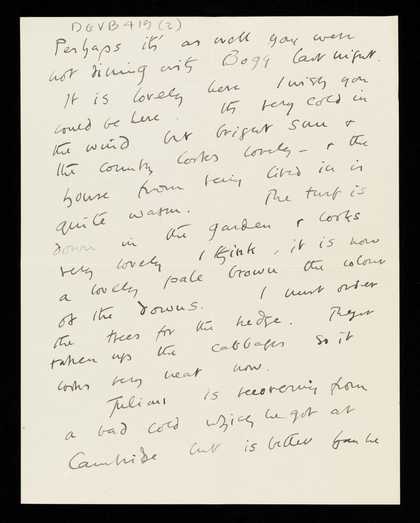 DGVB 419 (2)
Perhaps it's as well you were
not dining with Bogg last night.
It is lovely here I wish you
could be here. It's very cold in
the wind but bright sun &
the country looks lovely – & the
house from being lived in is
quite warm. The turf is
down in the garden & looks
very lovely I think, it is now
a lovely pale brown the colour
of the downs. I must order
the trees for the hedge. They've
taken up the cabbages so it
looks very neat now.
Julian is recovering from
a bad cold which he got at
Cambridge but is better